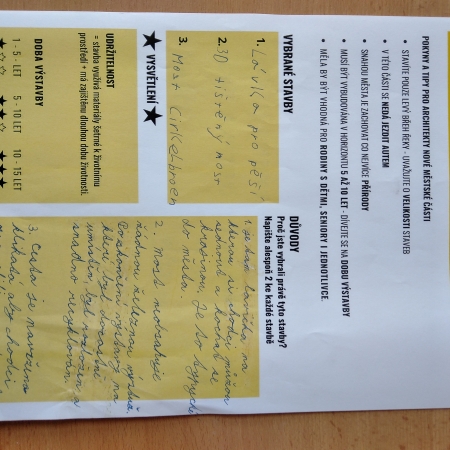 POKYNY A TIPY PRO ARCHITEKTY NOVÉ MĚSTSKÉ ČÁSTI
• STAVÍTE POUZE LEVÝ BŘEH ŘEKY - UVAŽUJTE O VELIKOSTI STAVEB
• V TÉTO ČÁSTI SE NEDÁ JEZDIT AUTEM
• SNAHOU MĚSTA JE ZACHOVAT CO NEJVÍCE PŘÍRODY
• MUSÍ BÝT VYBUDOVÁNA V HORIZONTU 5 AŽ 10 LET - DÍVEJTE SE NA DOBU VÝSTAVBY
• MĚLA BY BÝT VHODNÁ PRO RODINY S DĚTMI, SENIORY I JEDNOTLIVCE.
VYBRANÉ STAVBY
1. Lávka pro pěší
2. 3D tištěný most
3. Most Cirkelbroen
DŮVODY
Proč jste vybrali právě tyto stavby?
Napište alespoň 2 ke každé stavbě
1. je to lávka na
kterou se chodci můžou
sednout a kochat se
krajinou. Je to
do města
2. Most nedosahuje
žádnou železnou výrobu.
umístěn, byl rozložen a
snadno recyklován.
3. Cesta je navržena
klikatá aby chodci
★ VYSVĚTLENÍ ★
UDRŽITELNOST
= stavba využívá materiály šetrné k životnímu
prostředí + má zajištěnu dlouhou dobu životnosti.
DOBA VÝSTAVBY
1 - 5 - LET 5 - 10 LET 10 - 15 LET
★☆☆ ★★☆ ★★★